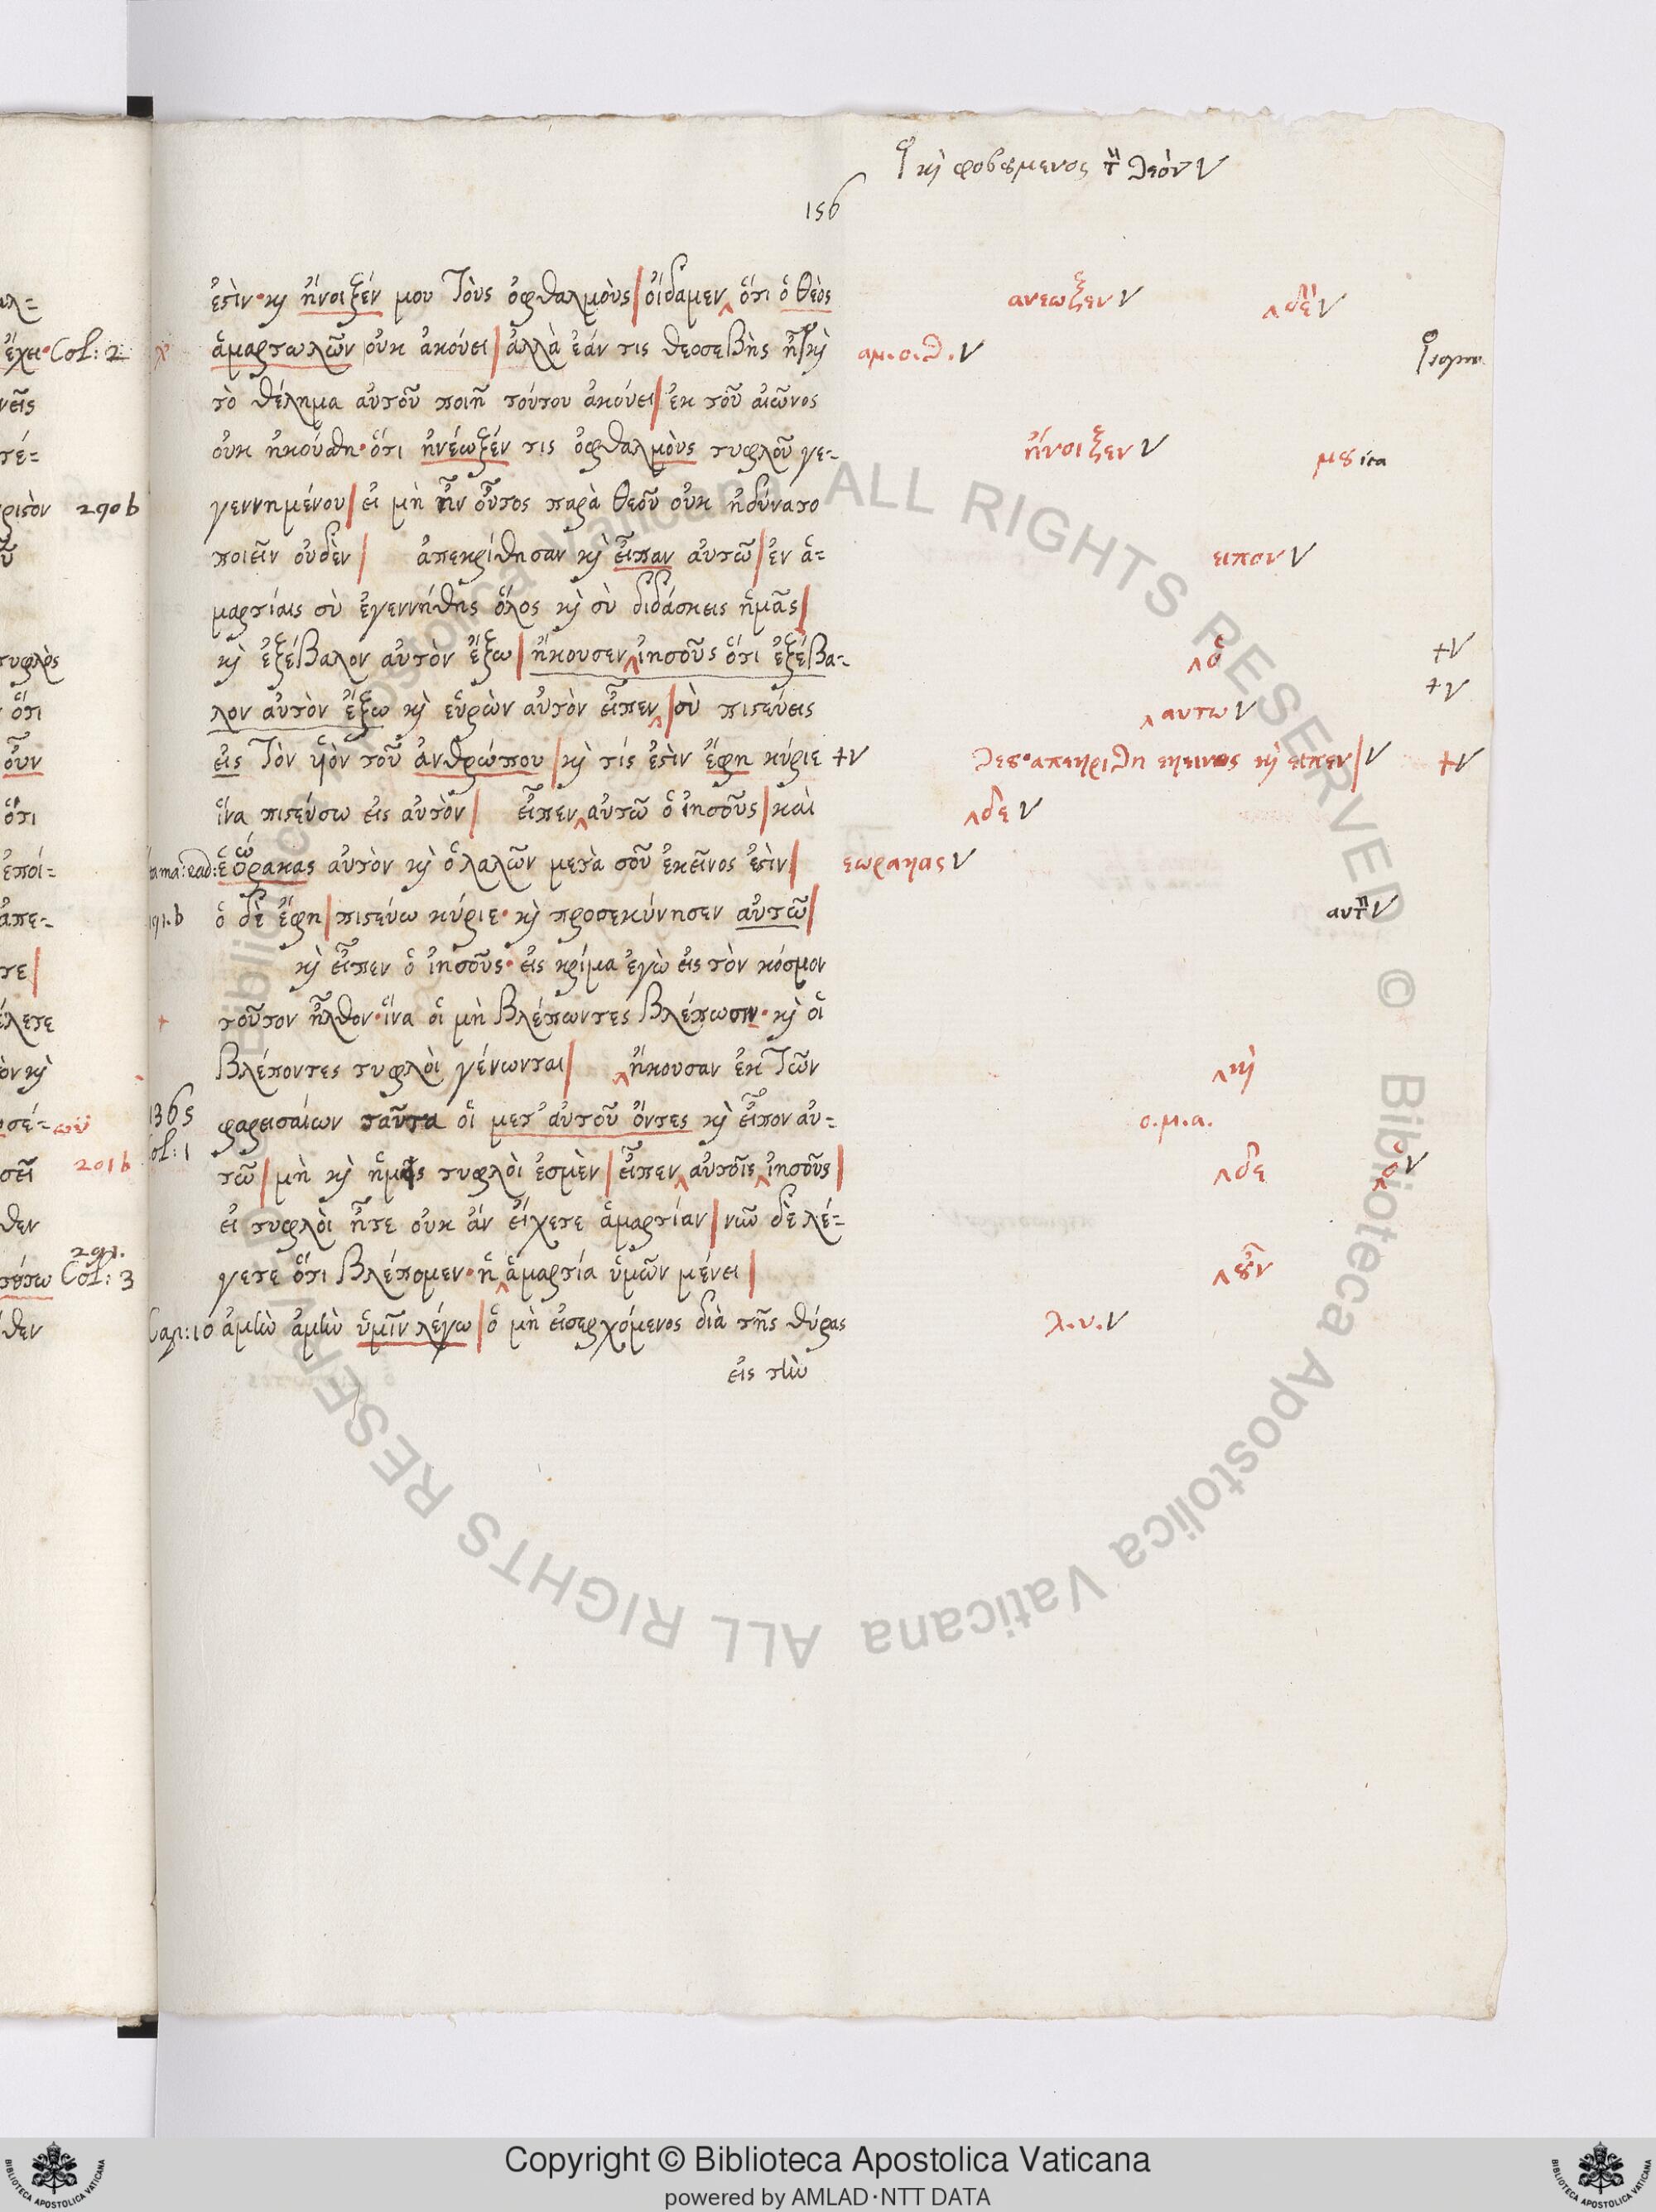 καὶ φοβούμενος τὸν θεὸν V
156
ἐστὶν· καὶ ἤνοιξέν μου τοὺς ὀφθαλμοὺς| οἴδαμεν ὅτι ὁ θεὸς
ανεωξεν V
δὲ V
ἁμαρτωλῶν οὐκ ἀκούει| ἀλλὰ ἐάν τις θεοσεβὴς ᾖ καὶ
αμ. ο. θ. V
τὸ θέλημα αὐτοῦ ποιῇ τούτου ἀκούει| ἐκ τοῦ αἰῶνος
οὐκ ἠκούσθη· ὅτι ἠνέωξέν τις ὀφθαλμοὺς τυφλοῦ γε-
ἤνοιξεν V
γεννημένου| εἰ μὴ ἦν οὗτος παρὰ θεοῦ οὐκ ἠδύνατο
ποιεῖν οὐδὲν| ἀπεκρίθησαν καὶ εἶπαν αὐτῶ| ἐν ἁ-
ειπον V
μαρτίαις σὺ ἐγεννήθης ὅλος καὶ σὺ διδάσκεις ἡμᾶς|
καὶ ἐξέβαλον αὐτὸν ἔξω| ἤκουσεν ἰησοῦς ὅτι ἐξέβα-
ὁ
+V
λον αὐτὸν ἔξω καὶ εὑρὼν αὐτὸν εἶπεν| σὺ πιστεύεις
αυτω V
+V
εἰς τὸν υἱὸν τοῦ ἀνθρώπου| καὶ τίς ἐστὶν ἔφη κύριε +V
θεου· απεκριθη εκεινος καὶ ειπεν| V
+V
ἵνα πιστεύσω εἰς αὐτὸν| εἶπεν αὐτῶ ὁ ἰησοῦς| καὶ
δε V
ἑόρακας αὐτὸν καὶ ὁ λαλῶν μετὰ σοῦ ἐκεῖνος ἐστὶν|
εωρακας V
ὁ δὲ ἔφη| πιστεύω κύριε· καὶ προσεκύνησεν αὐτῶ|
αυτὸν V
καὶ εἶπεν ὁ ἰησοῦς· εἰς κρίμα ἐγὼ εἰς τὸν κόσμον
τοῦτον ἦλθον· ἵνα οἱ μὴ βλέπωντες βλέπωσιν· καὶ οἱ
βλέποντες τυφλοὶ γένωνται| ἤκουσαν ἐκ τῶν
καὶ
φαρεισαίων ταῦτα οἱ μετ' αὐτοῦ ὄντες καὶ εἶπον αὐ-
ο. μ. α.
τῶ| μὴ καὶ ἡμεῖς τυφλοὶ ἐσμὲν| εἶπεν αὐτοῖς ἰησοῦς|
δε
ὁ V
εἰ τυφλοὶ ἦτε οὐκ ἂν εἴχετε ἁμαρτίαν| νῦν δὲ λέ-
γετε ὅτι βλέπομεν· ἡ ἁμαρτία ὑμῶν μένει|
οὖν
Cap: 10 ἀμὴν ἀμὴν ὑμῖν λέγω| ὁ μὴ εἰσερχόμενος διὰ τῆς θύρας
λ. υ. V
εἰς τὴν
ἔχει· Col: 2
290b
τυφλὸς
ὅτι
οὖν
ὅτι
ἐποί-
ἀπε-
1365
201b
291.
Col: 3
Copyright © Biblioteca Apostolica Vaticana
powered by AMLAD·NTT DATA
Biblioteca Apostolica Vaticana ALL RIGHTS RESERVED © Biblioteca Apostolica Vaticana ALL RIGHTS RESERVED ©
BIBLIOTECA APOSTOLICA VATICANA
BIBLIOTECA APOSTOLICA VATICANA